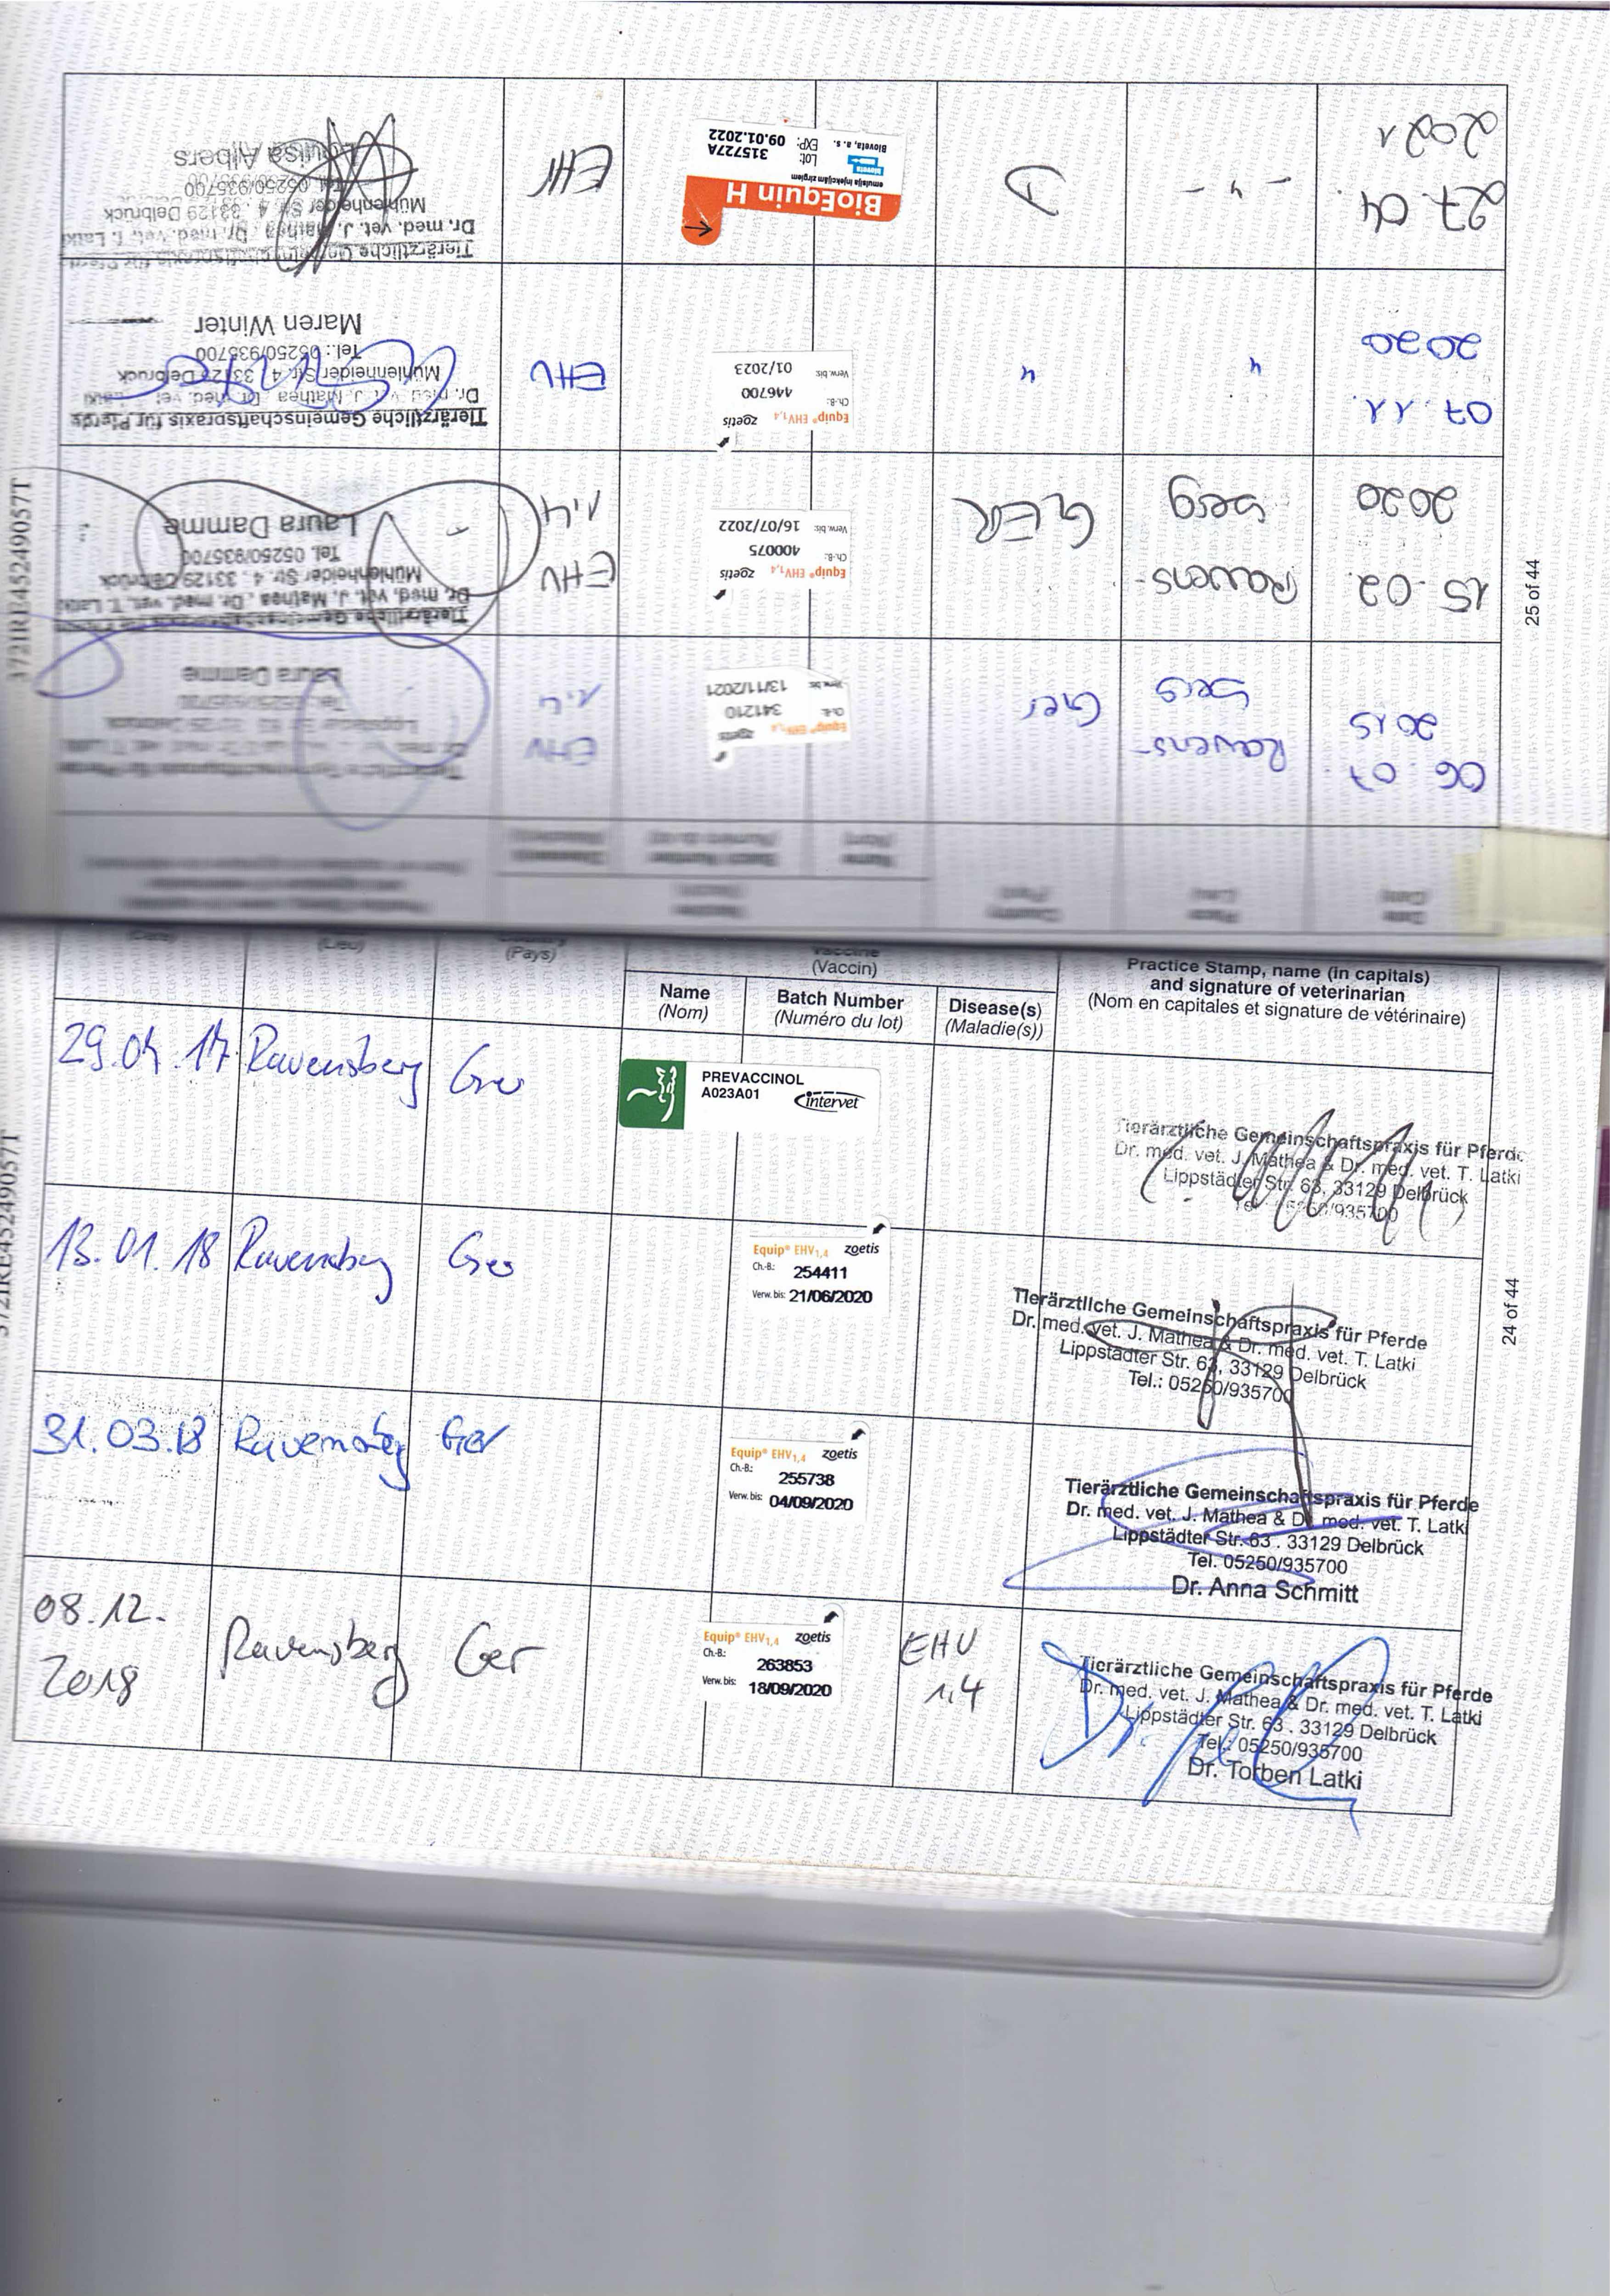 (Lieu)
(Pays)
Vaccine
(Vaccin)
Name
(Nom)
Batch Number
(Numéro du lot)
Disease(s)
(Maladie(s))
Practice Stamp, name (in capitals)
and signature of veterinarian
(Nom en capitales et signature de vétérinaire)
29.04.17 Ravensberg Ger
PREVACCINOL
A023A01 intervet
Tierärztliche Gemeinschaftspraxis für Pferde
Dr. med. vet. J. Mathea & Dr. med. vet. T. Latki
Lippstädter Str. 63, 33129 Delbrück
Tel.: 05250/935700
13.01.18 Ravensberg Ger
Equip® EHV1,4 zoetis
Ch.-B.: 254411
Verw. bis: 21/06/2020
Tierärztliche Gemeinschaftspraxis für Pferde
Dr. med. vet. J. Mathea & Dr. med. vet. T. Latki
Lippstädter Str. 63, 33129 Delbrück
Tel.: 05250/935700
31.03.18 Ravensberg Ger
Equip® EHV1,4 zoetis
Ch.-B.: 255738
Verw. bis: 04/09/2020
Tierärztliche Gemeinschaftspraxis für Pferde
Dr. med. vet. J. Mathea & Dr. med. vet. T. Latki
Lippstädter Str. 63 . 33129 Delbrück
Tel. 05250/935700
Dr. Anna Schmitt
08.12.
2018
Ravensberg Ger
Equip® EHV1,4 zoetis
Ch.-B.: 263853
Verw. bis: 18/09/2020
EHV
1,4
Tierärztliche Gemeinschaftspraxis für Pferde
Dr. med. vet. J. Mathea & Dr. med. vet. T. Latki
Lippstädter Str. 63 . 33129 Delbrück
Tel.: 05250/935700
Dr. Torben Latki
24 of 44
372IRE45249057T
Date
(Date)
Place
(Lieu)
Country
(Pays)
Vaccine
(Vaccin)
Name
(Nom)
Batch Number
(Numéro du lot)
Disease(s)
(Maladie(s))
06.07.
2019
Ravens-
berg
Ger
Equip® EHV1,4 zoetis
Ch.-B.: 341210
Verw. bis: 13/11/2021
EHV
1,4
Laura Damme
15.02.
2020
Ravens-
berg
GER
Equip® EHV1,4 zoetis
Ch.-B.: 400075
Verw. bis: 16/07/2022
EHV
1,4
Tierärztliche Gemeinschaftspraxis für Pferde
Dr. med. vet. J. Mathea . Dr. med. vet. T. Latki
Mühlenheider Str. 4 . 33129 Delbrück
Tel. 05250/935700
Laura Damme
07.11.
2020
"
"
Equip® EHV1,4 zoetis
Ch.-B.: 446700
Verw. bis: 01/2023
EHV
Tierärztliche Gemeinschaftspraxis für Pferde
Dr. med. vet. J. Mathea Dr. med. vet. Latki
Mühlenheider Str. 4 33129 Delbrück
Tel.: 05250/935700
Maren Winter
27.04.
2021
- " -
D
BioEquin H
emulsija injekcijām zirgiem
bioveta Lot: 315727A
Bioveta, a. s. EXP: 09.01.2022
EHV
Tierärztliche Gemeinschaftspraxis für Pferde
Dr. med. vet. J. Mathea . Dr. med. vet. T. Latki
Mühlenheider Str. 4 . 33129 Delbrück
Tel. 05250/935700
Louisa Albers
25 of 44
372IRE45249057T